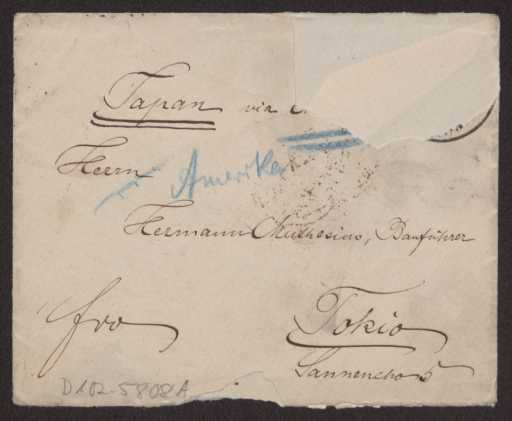 Japan via
Amerika
Herrn
Hermann Muthesius, Bauführer
fro
Tokio
Sannencho 5
D102-5808A